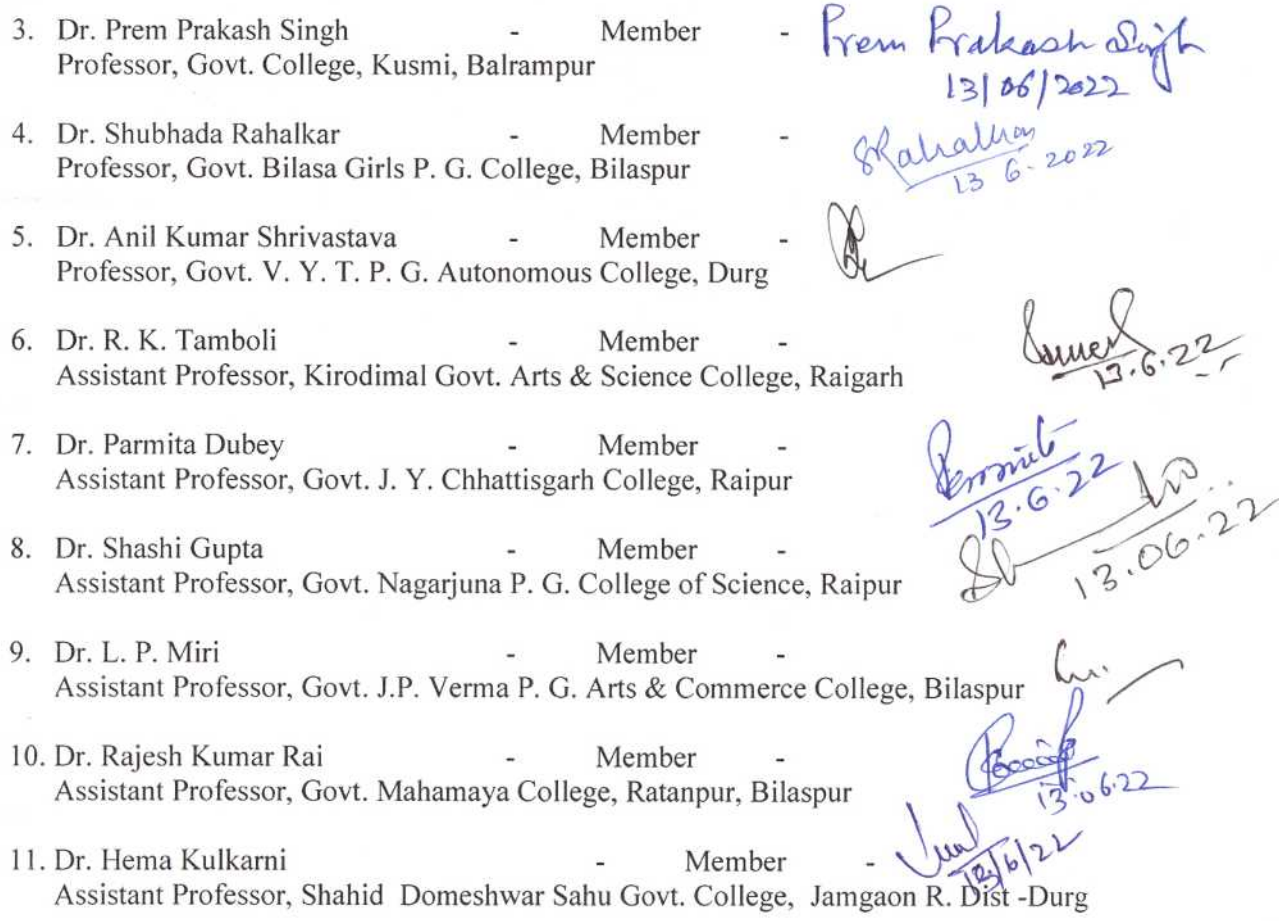 3. Dr. Prem Prakash Singh - Member - Prem Prakash Singh
Professor, Govt. College, Kusmi, Balrampur
13/06/2022
4. Dr. Shubhada Rahalkar - Member - SRahalkar
Professor, Govt. Bilasa Girls P. G. College, Bilaspur
13 6. 2022
5. Dr. Anil Kumar Shrivastava - Member -
Professor, Govt. V. Y. T. P. G. Autonomous College, Durg
6. Dr. R. K. Tamboli - Member -
13.6.22
Assistant Professor, Kirodimal Govt. Arts & Science College, Raigarh
7. Dr. Parmita Dubey - Member -
Assistant Professor, Govt. J. Y. Chhattisgarh College, Raipur
13.6.22
8. Dr. Shashi Gupta - Member -
13.06.22
Assistant Professor, Govt. Nagarjuna P. G. College of Science, Raipur
9. Dr. L. P. Miri - Member -
Assistant Professor, Govt. J.P. Verma P. G. Arts & Commerce College, Bilaspur
10. Dr. Rajesh Kumar Rai - Member -
Assistant Professor, Govt. Mahamaya College, Ratanpur, Bilaspur
13.06.22
11. Dr. Hema Kulkarni - Member -
13/6/22
Assistant Professor, Shahid Domeshwar Sahu Govt. College, Jamgaon R. Dist -Durg